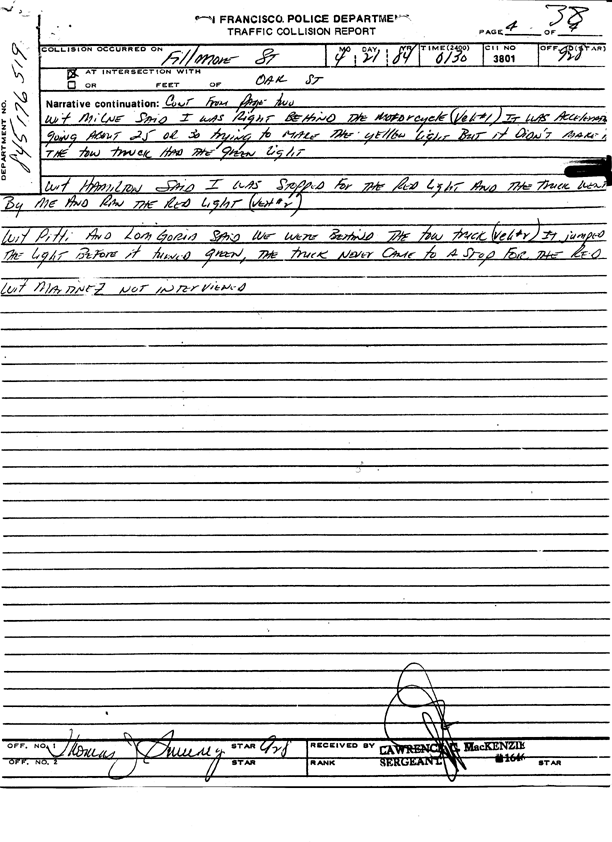 FRANCISCO POLICE DEPARTMEN
TRAFFIC COLLISION REPORT
PAGE 4 OF 4
38
DEPARTMENT NO. 845176519
COLLISION OCCURRED ON Fillmore ST
MO 4 DAY 21 YR 84
TIME (2400) 0130
CII NO 3801
OFF. ID (STAR) 928
☒ AT INTERSECTION WITH OAK ST
☐ OR FEET OF
Narrative continuation: CONT FROM PAGE TWO
WIT MILNE SAID I WAS RIGHT BEHIND THE MOTORCYCLE (VEH#1) IT WAS
GOING ABOUT 25 OR SO TRYING TO MAKE THE YELLOW LIGHT BUT IT DIDN'T MAKE
THE TOW TRUCK HAD THE GREEN LIGHT
WIT HAMILTON SAID I WAS STOPPED FOR THE RED LIGHT AND THE TRUCK WENT
BY ME AND RAN THE RED LIGHT (VEH#2)
WIT PITTI AND LOMGORIA SAID WE WERE BEHIND THE TOW TRUCK (VEH#2) IT JUMPED
THE LIGHT BEFORE IT TURNED GREEN, THE TRUCK NEVER CAME TO A STOP FOR THE RED
WIT MARTINEZ NOT INTERVIEWED
OFF. NO. 1 Thomas J Sweeney STAR 928
RECEIVED BY LAWRENCE C. MacKENZIE
OFF. NO. 2 STAR
RANK SERGEANT STAR